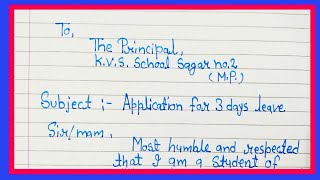 To,
The Principal,
K.V.S. School Sagar no.2
(M.P.)
Subject :- Application for 3 days leave
Sir/mam,
Most humble and respected
that I am a student of